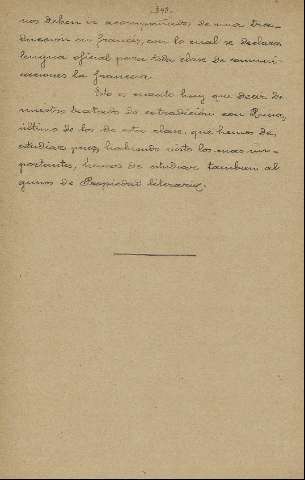 345.
nos deben ir acompañados de una tra-
duccion en francés, con lo cual se declara
lengua oficial para toda clase de comuni-
caciones la francesa.
Esto es cuanto hay que decir de
nuestro tratado de extradición con Rusia,
último de los de esta clase, que hemos de
estudiar pues, habiendo visto los mas im-
portantes, hemos de estudiar tambien al
gunos de Propiedad literaria.